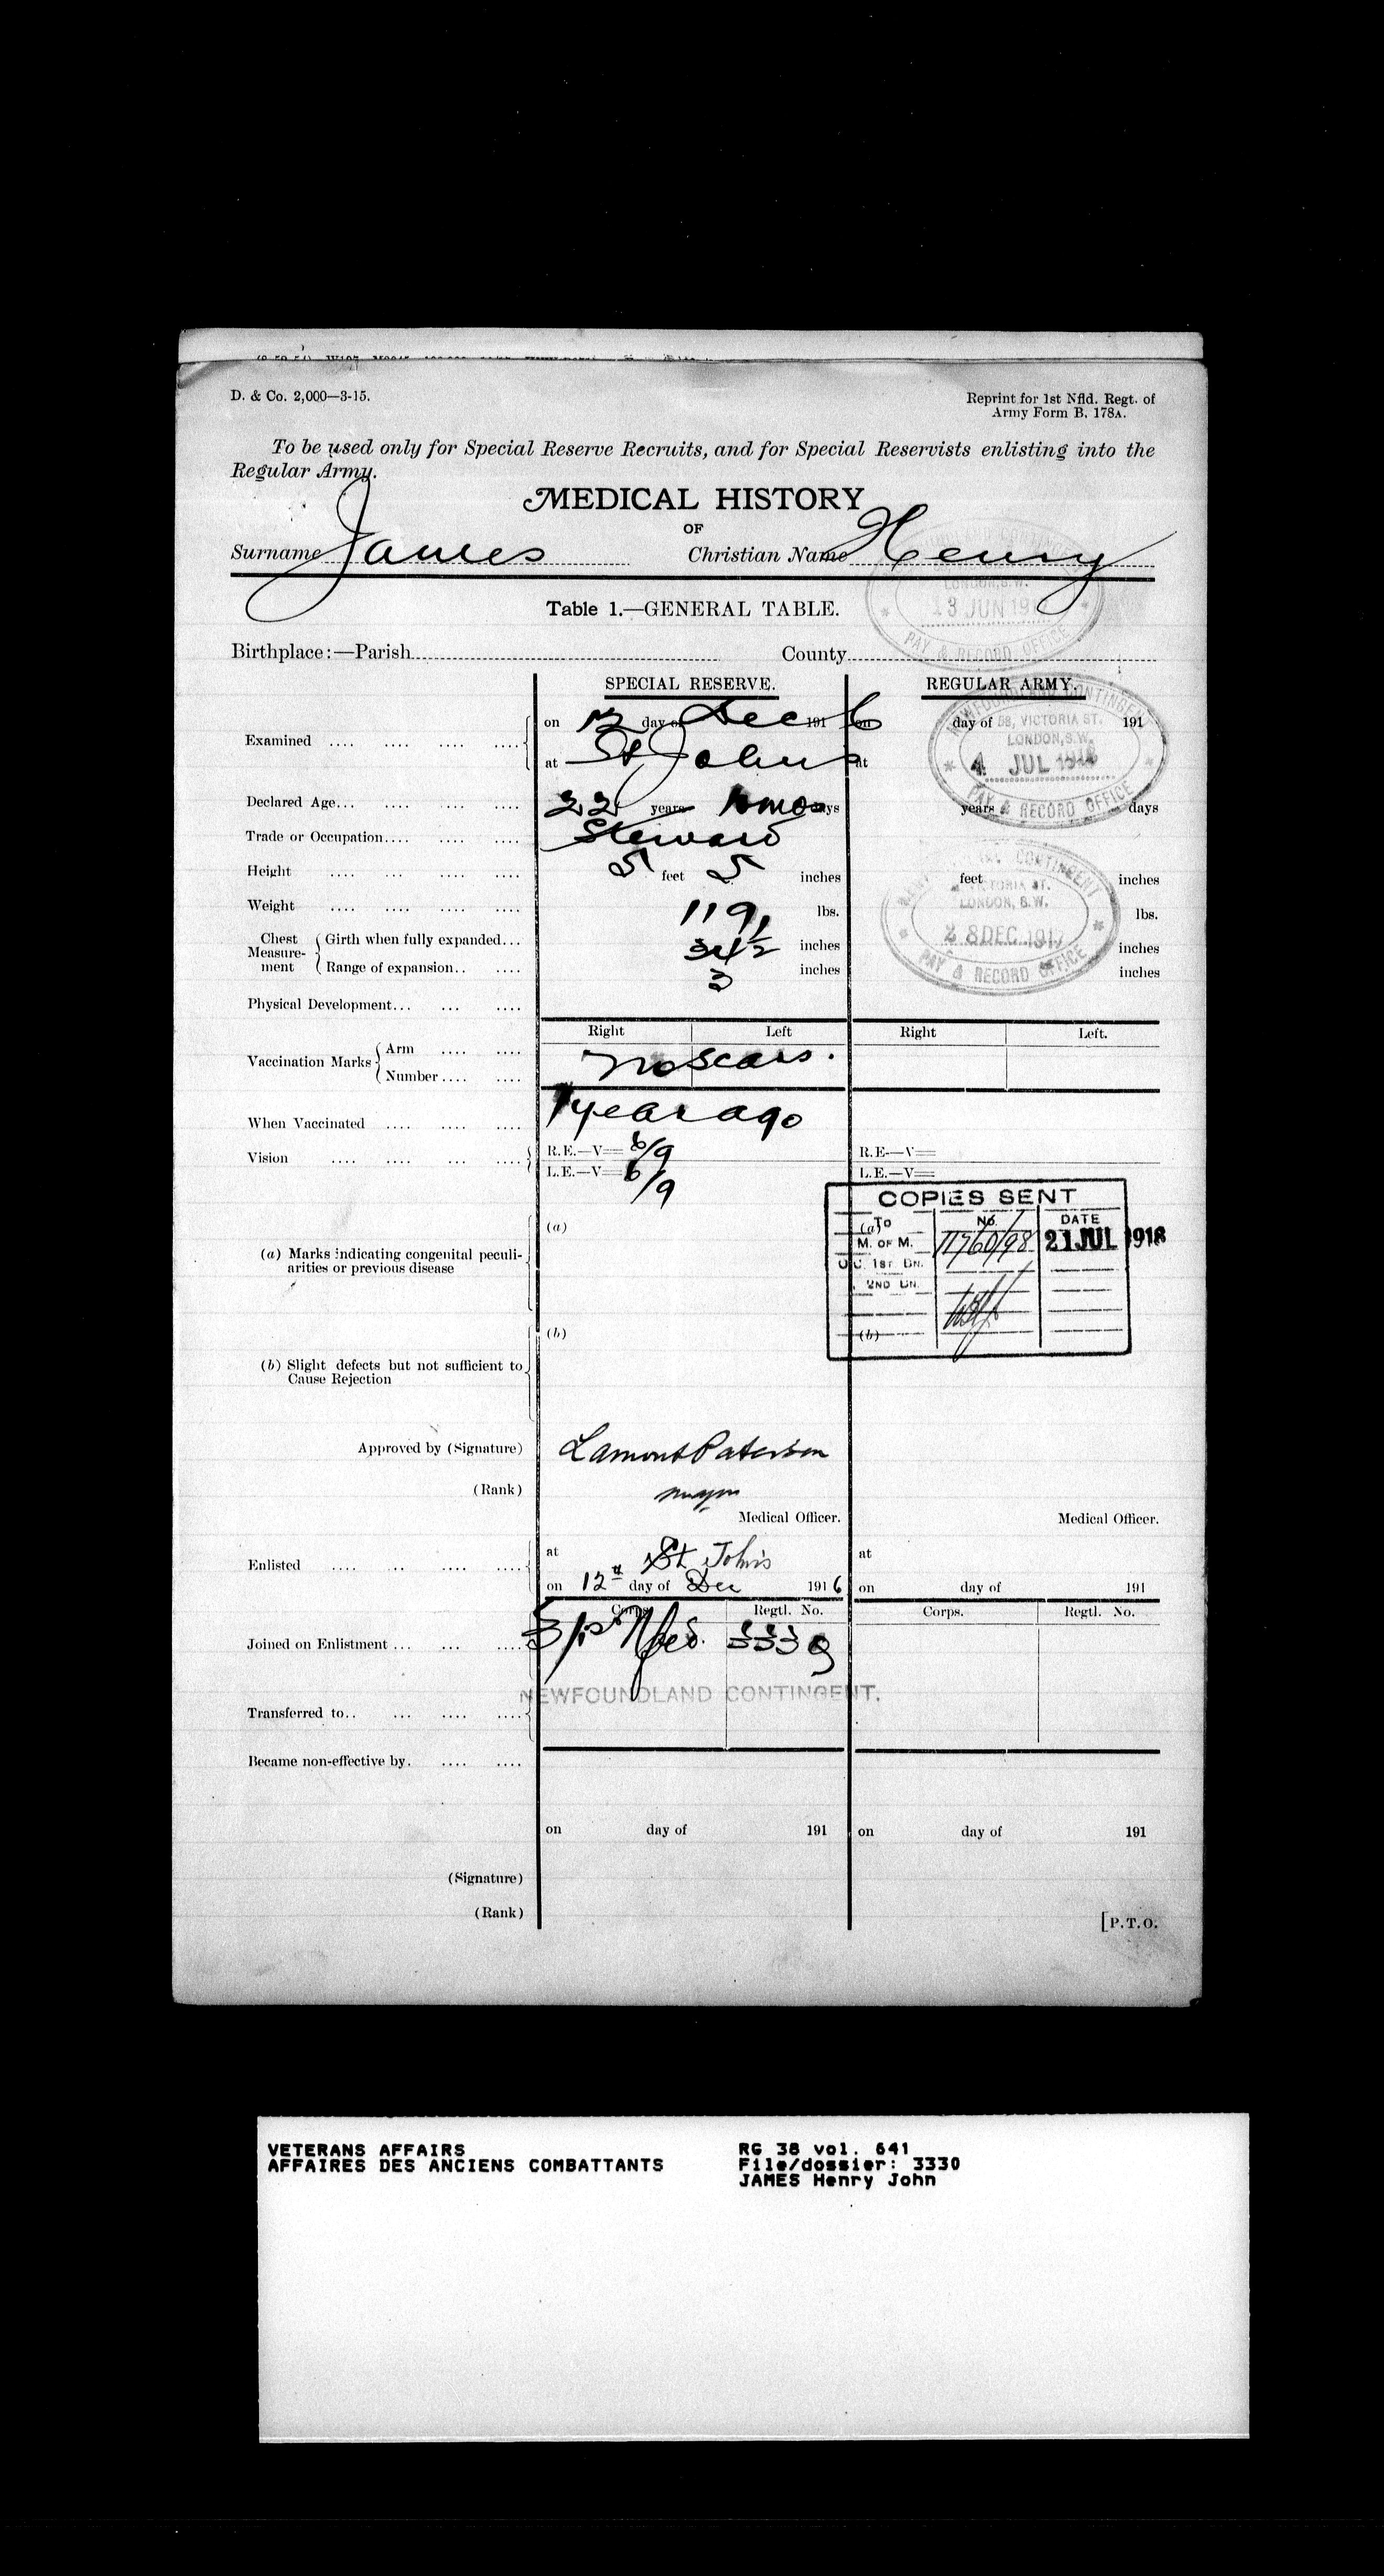 D. & Co. 2,000—3-15.
Reprint for 1st Nfld. Regt. of
Army Form B. 178A.
To be used only for Special Reserve Recruits, and for Special Reservists enlisting into the
Regular Army.
MEDICAL HISTORY
OF
Surname James Christian Name Henry
LONDON, S.W.
13 JUN 191
PAY & RECORD OFFICE
Table 1.—GENERAL TABLE.
Birthplace:—Parish County
SPECIAL RESERVE. REGULAR ARMY.
Examined .... .... .... .... on 12 day of Dec 191 6 on day of 191
at St Johns at
NEWFOUNDLAND CONTINGENT
58, VICTORIA ST.
LONDON, S.W.
4 JUL 1918
PAY & RECORD OFFICE
Declared Age... .... .... .... 22 years mos days years days
Trade or Occupation.... .... .... Steward
Height .... ... .... .... 5 feet 5 inches feet inches
Weight .... .... .... .... 119 lbs. lbs.
Chest Measure-ment Girth when fully expanded... 34 1/2 inches inches
Range of expansion.. .... 3 inches inches
CONTINGENT
VICTORIA ST.
LONDON, S.W.
28 DEC 1917
PAY & RECORD OFFICE
Physical Development... ... ....
Right Left Right Left.
Vaccination Marks Arm .... .... no scars.
Number.... ....
When Vaccinated .... .... .... 1 year ago
Vision .... .... ... .... R.E.—V= 6/9 R.E.—V=
L.E.—V= 6/9 L.E.—V=
COPIES SENT
To No. DATE
M. OF M. 11760/98 21 JUL 1918
O.C. 1ST BN.
2ND BN.
(a) Marks indicating congenital peculi-
arities or previous disease
(a) (a)
(b) (b)
(b) Slight defects but not sufficient to
Cause Rejection
Approved by (Signature) Lamont Paterson
(Rank) major
Medical Officer. Medical Officer.
Enlisted .... .. .... .... at St John's at
on 12th day of Dec 191 6 on day of 191
Corps. Regtl. No. Corps. Regtl. No.
Joined on Enlistment ... ... .... 3/1st Nfld. 3330
NEWFOUNDLAND CONTINGENT.
Transferred to.. ... .... ....
Became non-effective by. .... ....
on day of 191 on day of 191
(Signature)
(Rank)
[P.T.O.
VETERANS AFFAIRS RG 38 vol. 641
AFFAIRES DES ANCIENS COMBATTANTS File/dossier: 3330
JAMES Henry John